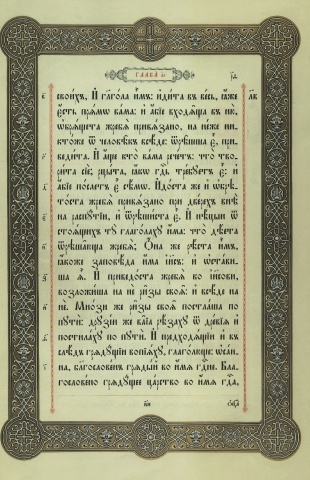 ГЛАВА
свои́хъ, И҆ глаго́ла и҆̀мъ: и҆ди́та въ ве́сь, ꙗ҆́же
є҆́сть прѧ́мѡ ва́ма: и҆ а҆́бїе входѧ̑ща въ ню̀,
ѡ҆брѧ́щета жребѧ̀ привѧ́зано, на не́же ни-
кто́же ѿ человѣ̑къ всѣ́де: ѿрѣ̑шша є҆̀, при-
веди́та. И҆ а҆́ще кто̀ ва́ма рече́тъ: что̀ тво-
рита сїѐ; рцы́та, ꙗ҆́кѡ гдⷭ҇ь тре́бꙋетъ є҆̀: и҆
а҆́бїе по́слетъ є҆̀ сѣ́мѡ. И҆до́ста же и҆ ѡ҆брѣ-
то́ста жребѧ̀ привѧ́зано при две́рехъ внѣ̀
на распꙋ́тїи, и҆ ѿрѣши́ста є҆̀. И҆ нѣ́цыи ѿ
стоѧ́щихъ тꙋ̀ глаго́лахꙋ и҆́ма: что̀ дѣ́ета
ѿрѣша̑юща жребѧ̀; Ѻ҆на́ же рѣ́ста и҆̀мъ,
ꙗ҆́коже заповѣ́да и҆́ма і҆и҃съ: и҆ ѡ҆ста́ви-
ша ꙗ҆̀. И҆ приведо́ста жребѧ̀ ко і҆и҃сови,
возложи́ша на нѐ ри̑зы своѧ̑: и҆ всѣ́де на
нѐ. Мно́зи же ри̑зы своѧ̑ постла́ша по
пꙋтѝ: дрꙋзі́и же ва̑їѧ рѣ́захꙋ ѿ дре́вїѧ и҆
постила́хꙋ по пꙋтѝ. И҆ предходѧ́щїи и҆ в̾-
слѣ́дъ грѧдꙋ́щїи вопїѧ́хꙋ, глаго́люще: ѡ҆са́н-
на, благослове́нъ грѧды́й во и҆́мѧ гдⷭ҇не. Бла-
гослове́но грѧдꙋ́щее ца́рство во и҆́мѧ гдⷭ҇а,